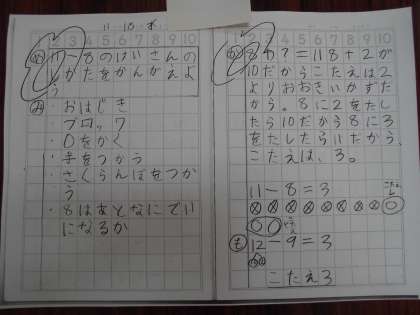 11-18-木
1 2 3 4 5 6 7 8 9 10
め 11-8のけいさんの
しかたをかんがえよ
う
み ・おはじき
・ブロック
・○をかく
・手をつかう
・さくらんぼをつか
う
・8はあとなにでい
になるか
1 2 3 4 5 6 7 8 9 10
か 8+?=11 8+2が
10だからこたえは2
よりおおきいかずだ
から。8に2をたし
たら10だから8に3
をたしたら11だから、
こたえは、3。
11-8=3
こたえ
も 12-9=3
こたえ3